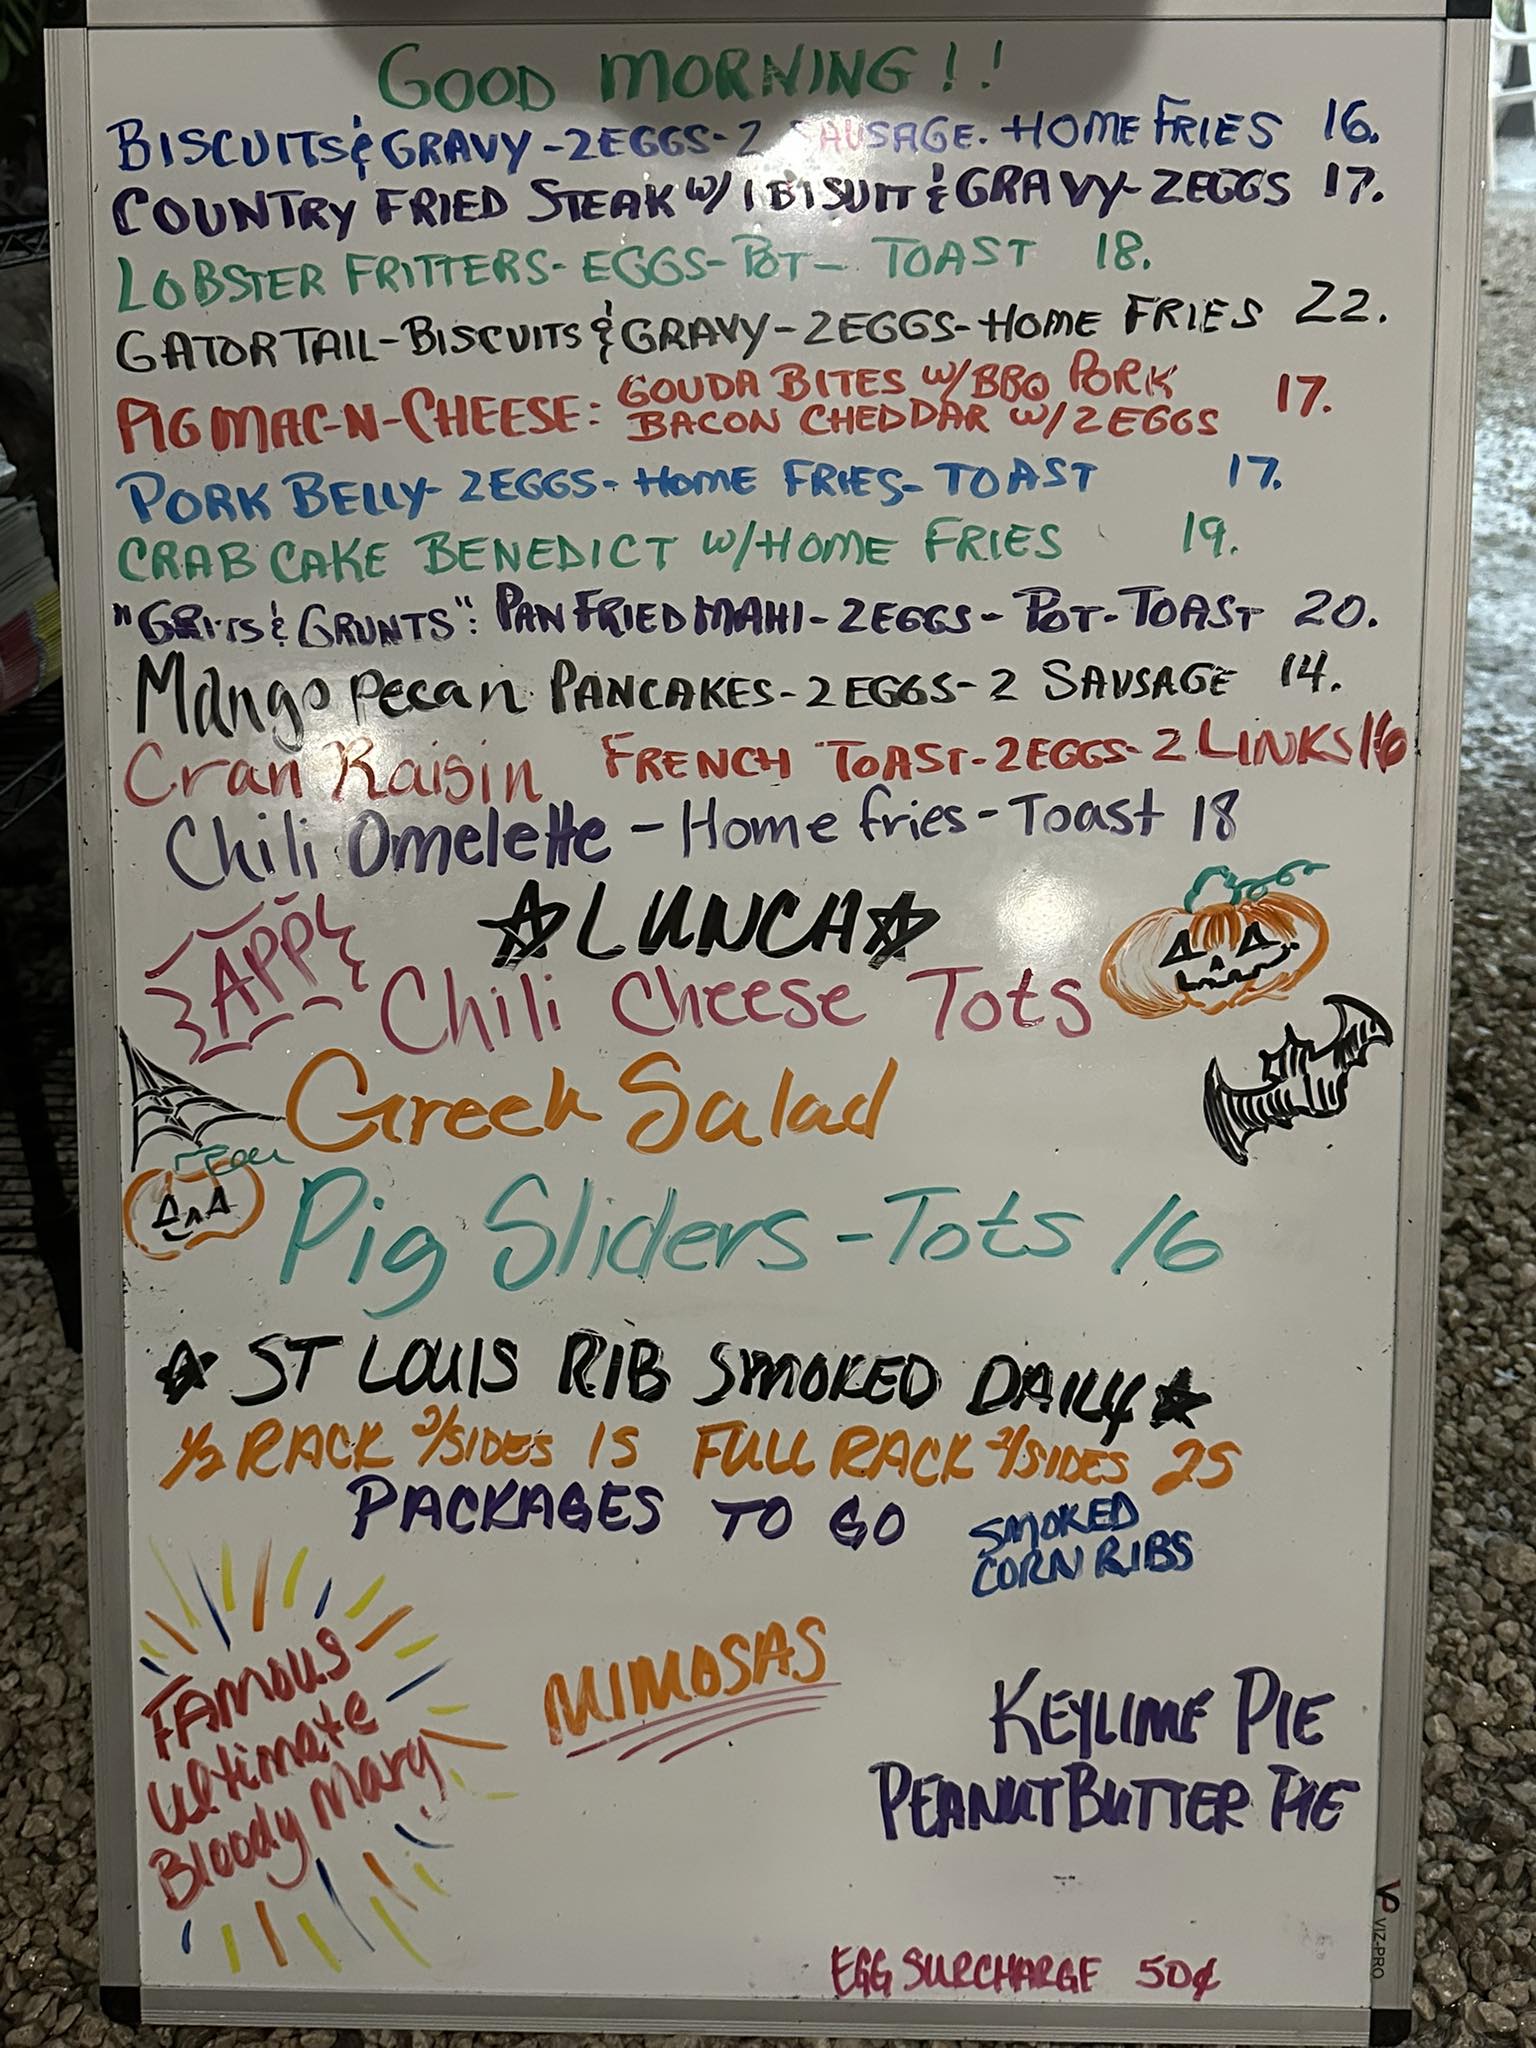 GOOD MORNING!!
BISCUITS & GRAVY - 2EGGS - 2 SAUSAGE. HOME FRIES 16.
COUNTRY FRIED STEAK W/ 1 BISUIT & GRAVY - 2EGGS 17.
LOBSTER FRITTERS - EGGS - POT - TOAST 18.
GATOR TAIL - BISCUITS & GRAVY - 2EGGS - HOME FRIES 22.
PIG MAC-N-CHEESE: GOUDA BITES W/BBQ PORK
BACON CHEDDAR W/2 EGGS 17.
PORK BELLY - 2EGGS - HOME FRIES - TOAST 17.
CRAB CAKE BENEDICT W/HOME FRIES 19.
"GRITS & GRUNTS": PAN FRIED MAHI - 2EGGS - POT - TOAST 20.
Mango Pecan PANCAKES - 2 EGGS - 2 SAUSAGE 14.
Cran Raisin FRENCH TOAST - 2EGGS - 2 LINKS 16
Chili Omelette - Home fries - Toast 18
☆LUNCH☆
APP
Chili Cheese Tots
Greek Salad
Pig Sliders - Tots 16
☆ ST LOUIS RIB SMOKED DAILY ☆
1/2 RACK 2/SIDES 15 FULL RACK 2/SIDES 25
PACKAGES TO GO
SMOKED
CORN RIBS
FAMOUS
Ultimate
Bloody Mary
MIMOSAS
KEYLIME PIE
PEANUT BUTTER PIE
EGG SURCHARGE 50¢
VIZ-PRO